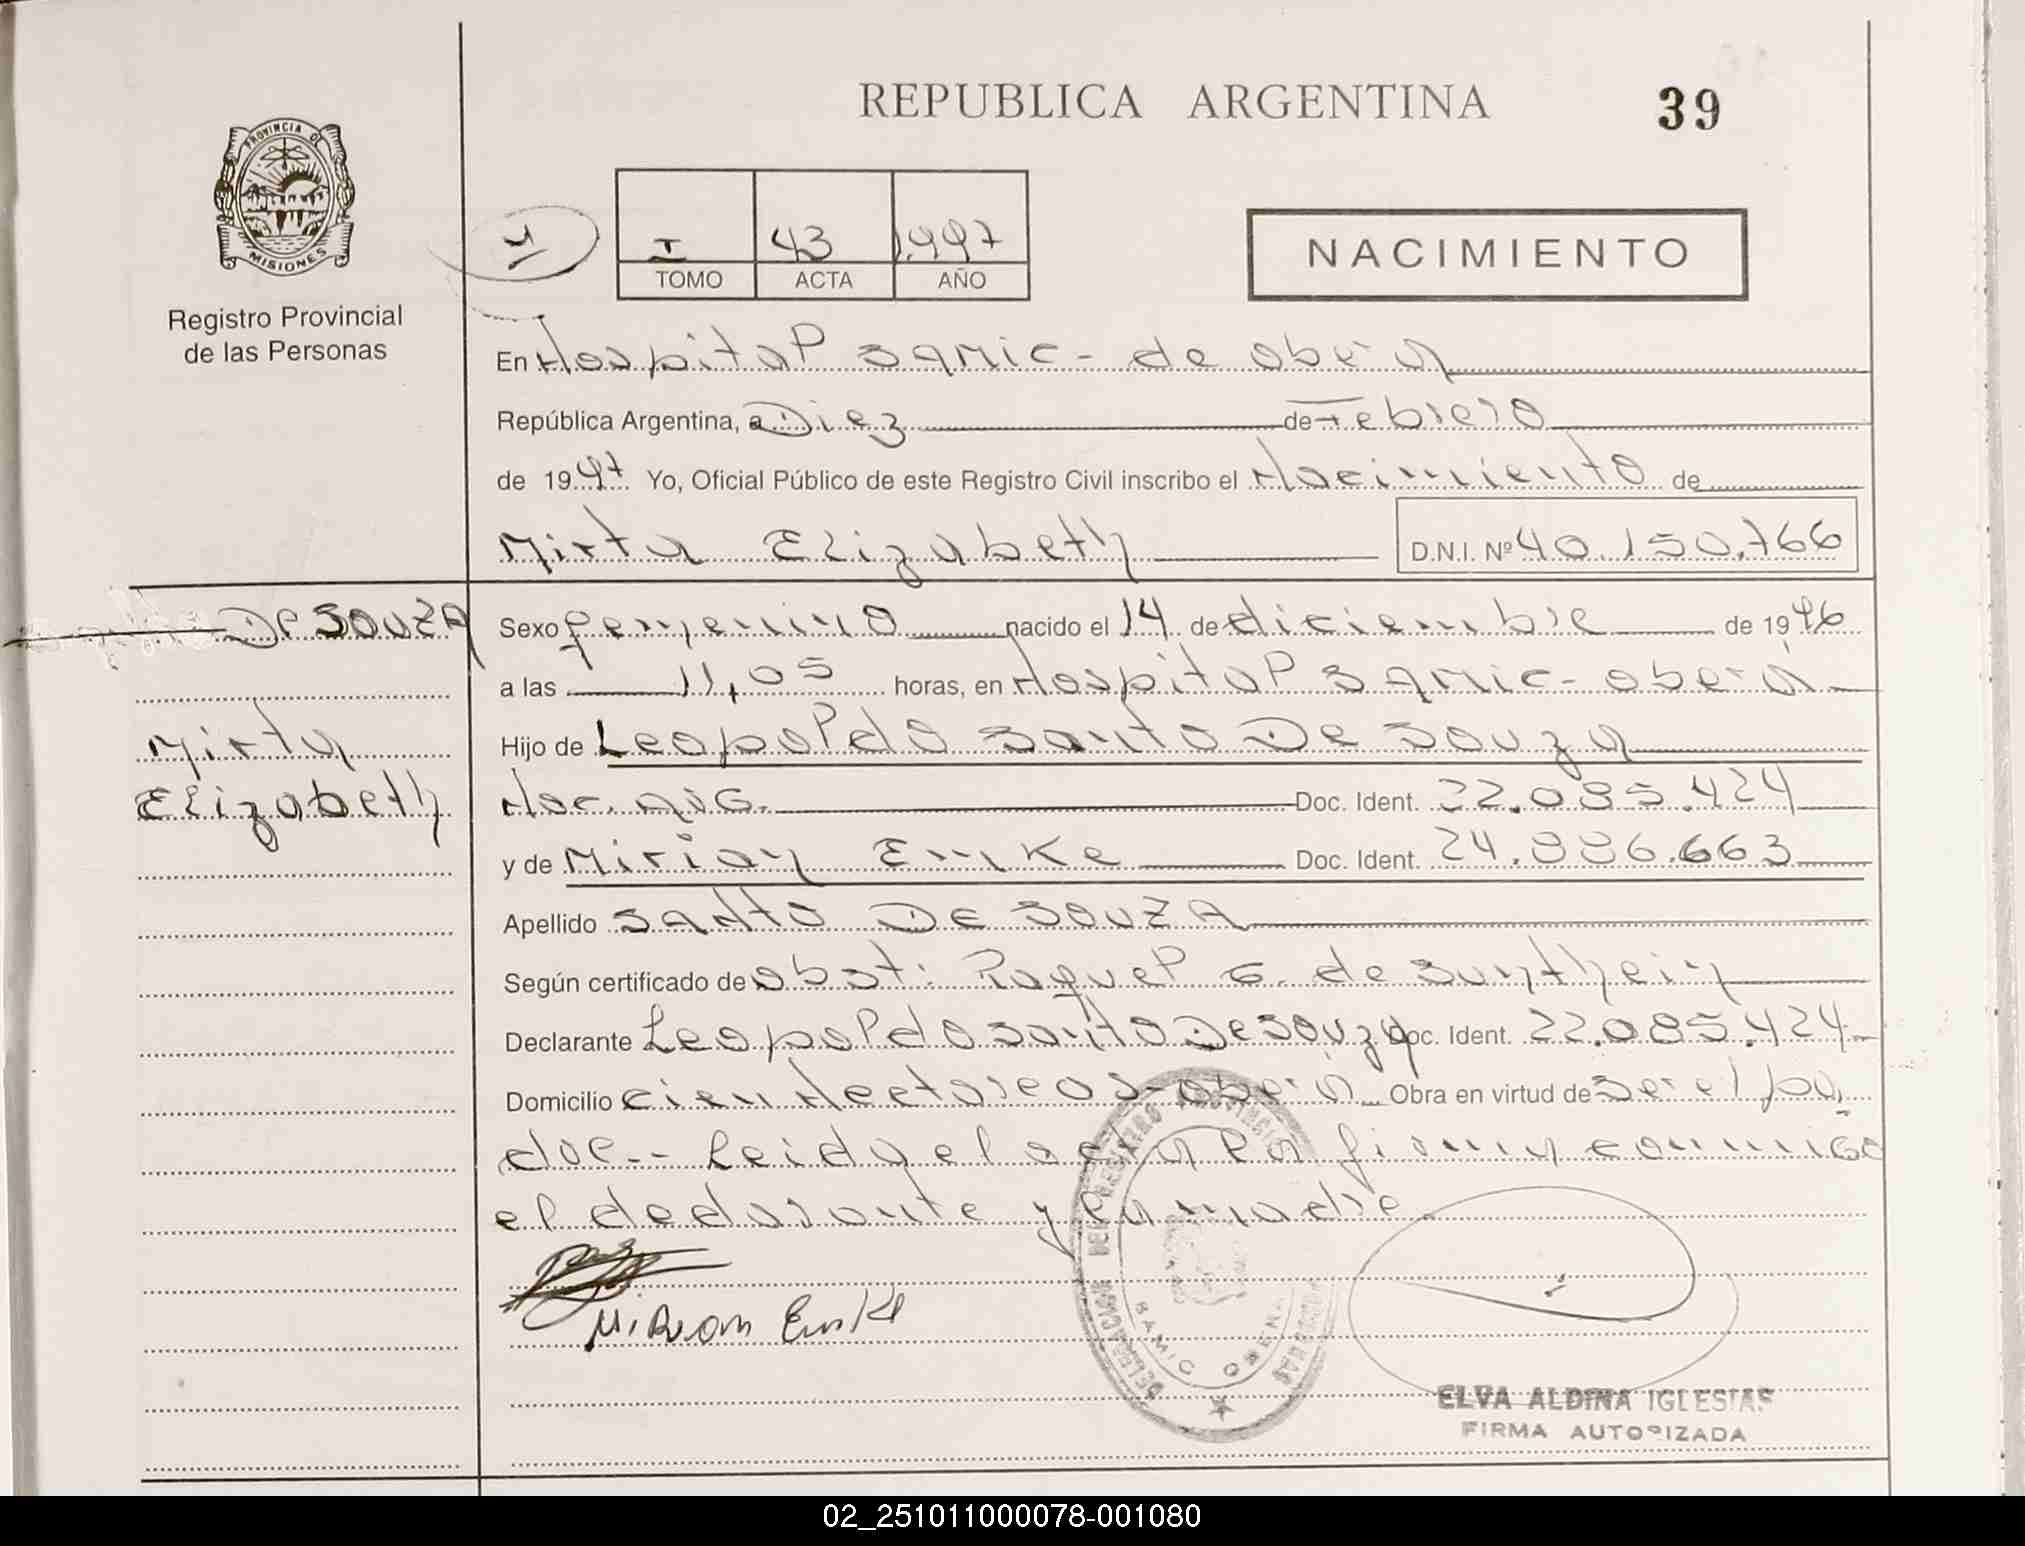 REPUBLICA ARGENTINA
39
PROVINCIA DE
MISIONES
Registro Provincial
de las Personas
I 43 1.997
TOMO ACTA AÑO
NACIMIENTO
En Hospital Samic - de oberá
República Argentina, a Diez de Febrero
de 1997 Yo, Oficial Público de este Registro Civil inscribo el Nacimiento de
Mirta Elizabeth D.N.I. Nº 40.150.766
De SOUZA
Mirta
Elizabeth
Sexo femenino nacido el 14 de diciembre de 1996
a las 11,05 horas, en Hospital Samic - oberá
Hijo de Leopoldo Santo De Souza
Nac. arg. Doc. Ident. 22.085.424
y de Miriam Emke Doc. Ident. 24.886.663
Apellido SANTO DE SOUZA
Según certificado de obst: Raquel G. de Suntheim
Declarante Leopoldo Santo De Souza Doc. Ident. 22.085.424
Domicilio cien Hectareas - oberá Obra en virtud de Ser el pa
dre.- Leida el acta la firma conmigo
el declarante y la madre
Miriam Emke
DELEGACION DEL REGISTRO PROVINCIAL PERSONAS
SAMIC OBERA
ELVA ALDINA IGLESIAS
FIRMA AUTORIZADA
02_251011000078-001080